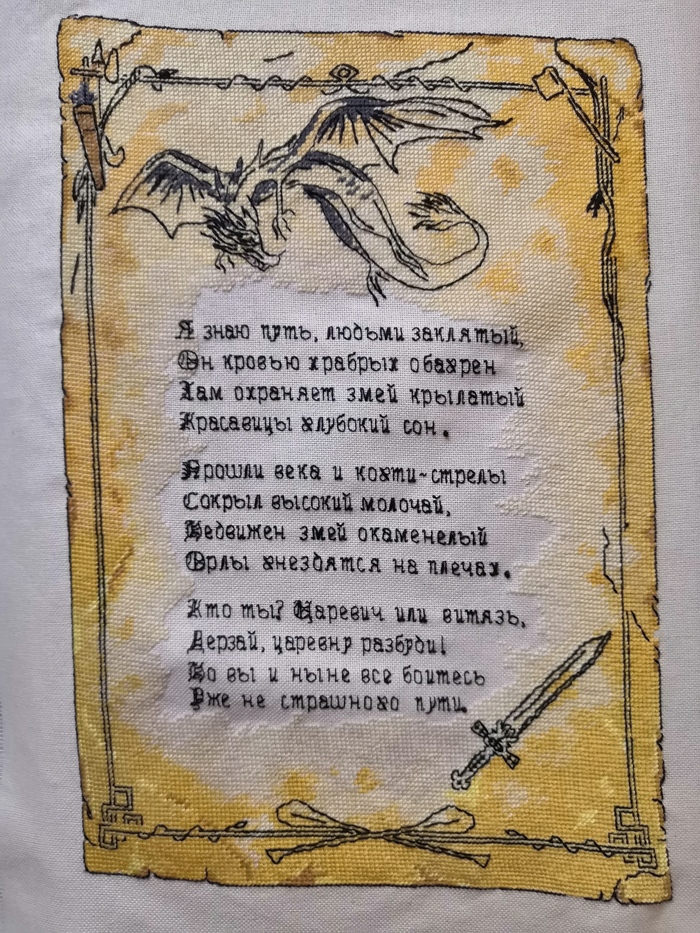 Я знаю путь, людьми заклятый,
Он кровью храбрых обагрен
Там охраняет змей крылатый
Красавицы глубокий сон.
Прошли века и когти-стрелы
Сокрыл высокий молочай,
Недвижен змей окаменелый
Орлы гнездятся на плечах.
Кто ты? Царевич или витязь,
Дерзай, царевну разбуди!
Но вы и ныне все боитесь
Уже не страшного пути.